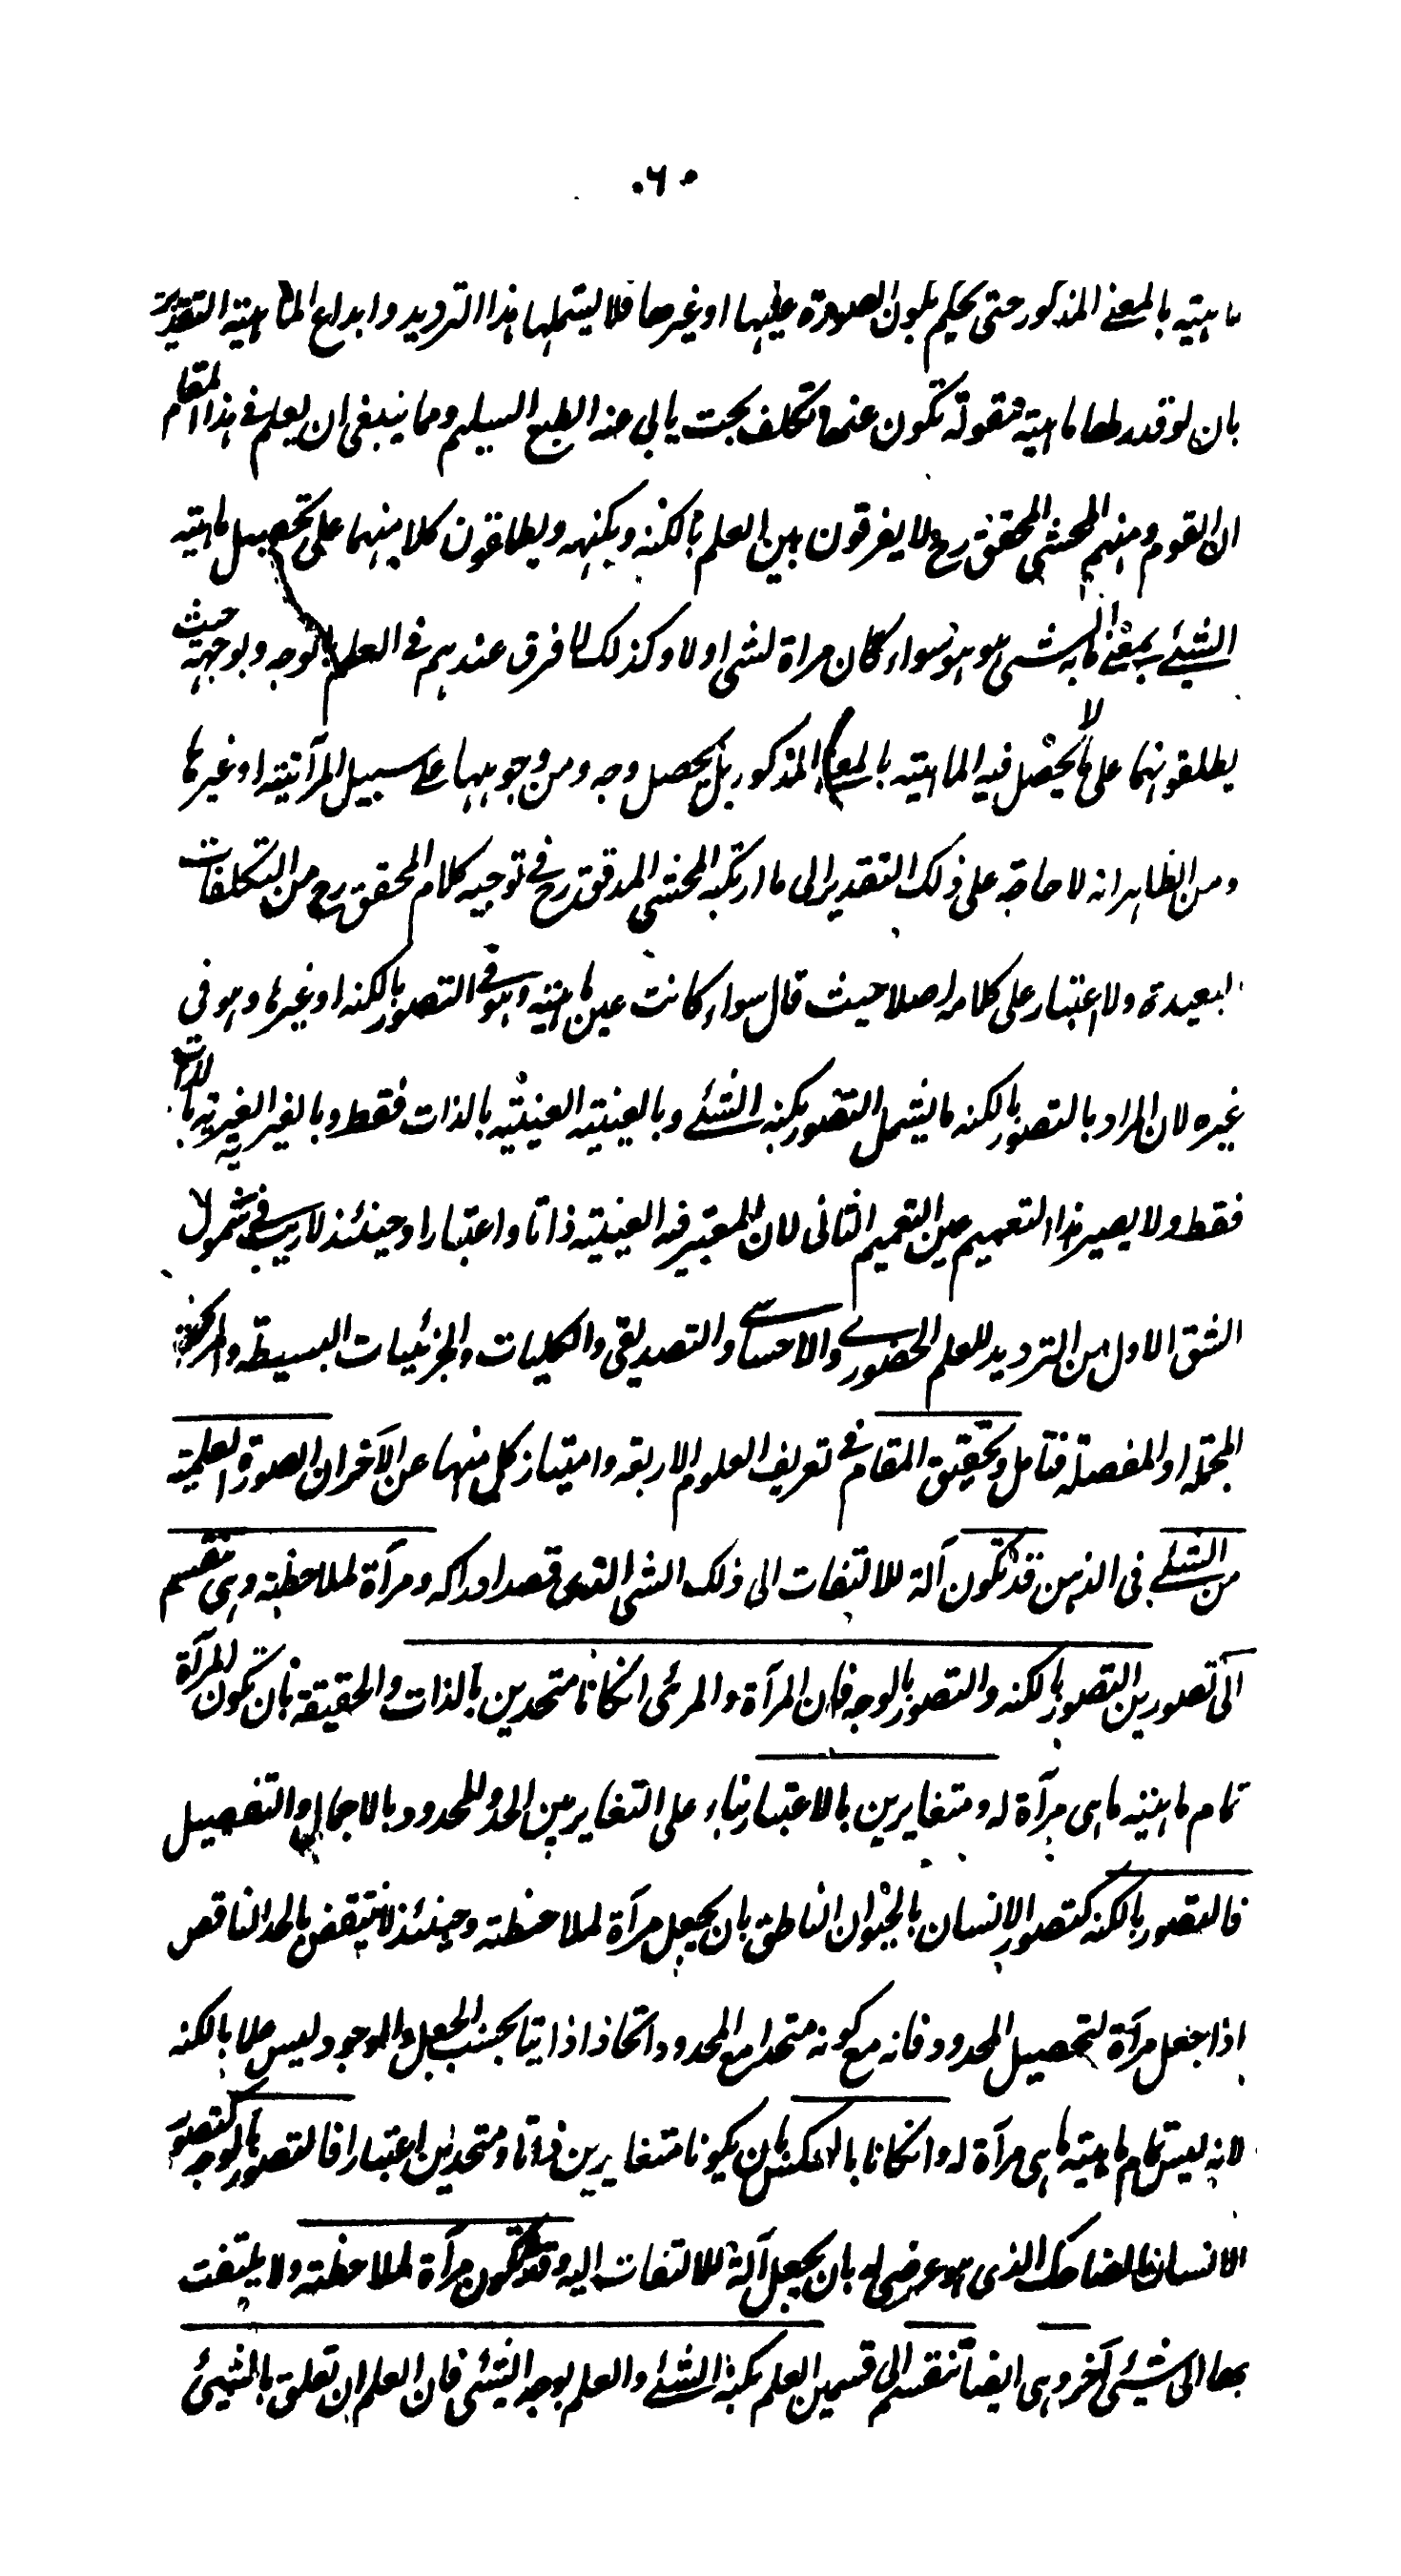 ٠٦٠
ماهيته بالمعنى المذكور حتى يحكم بكون الصورة عليها او غيرها فلا يشتملها هذا الترديد وابداع الماهية التقديرية
بان لو قدر لها ماهية مقولة تكون عنها تكلف بحت يابى عنه الطبع السليم ومما ينبغى ان يعلم فى هذا المقام
ان القوم ومنهم المحشى المحقق رح لا يفرقون بين العلم بالكنه وبكنهه ويطلقون كلا منهما على تحصيل ماهية
الشئ بمعنى ما به الشى هو هو سواء كان مراة لشى اولا وكذلك لا فرق عندهم فى العلم بالوجه وبوجهه حيث
يطلقونهما على ما لا يحصل فيه الماهية بالمعنى المذكور بل يحصل وجه من وجوهها على سبيل المرآتية او غيرها
ومن الظاهر انه لا حاجة على ذلك التقدير الى ما ارتكبه المحشى المدقق رح فى توجيه كلام المحقق رح من التكلفات
البعيدة ولا اعتبار على كلامه اصلا حيث قال سواء كانت عين ماهيته وهو فى التصور بالكنه او غيرها وهو فى
غيره لان المراد بالتصور بالكنه ما يشمل التصور بكنه الشئ وبالعينية العينية بالذات فقط وبالغير الغيرية بالذات
فقط ولا يصير هذا التعميم عين التعميم الثانى لان المعتبر فيه العينية ذاتا واعتبارا وحينئذ لا ريب فى شمول
الشق الاول من الترديد للعلم الحضورى والاحساسى والتصديقى والكليات والجزئيات البسيطة والمركبة
المجملة او المفصلة فتامل وتحقيق المقام فى تعريف العلوم الاربعة وامتياز كل منها عن الآخر ان الصورة العلمية
من الشئ فى الذهن قد تكون آلة للالتفات الى ذلك الشى الذى قصد ادراكه ومرآة لملاحظته وهى تنقسم
الى تصورين التصور بالكنه والتصور بالوجه فان المرآة والمرئى ان كانا متحدين بالذات والحقيقة بان تكون المرآة
تمام ماهية ما هى مرآة له ومتغايرين بالاعتبار بناء على التغاير بين الحد والمحدود بالاجمال والتفصيل
فالتصور بالكنه كتصور الانسان بالحيوان الناطق بان يجعل مرآة لملاحظته وحينئذ لا ينتقض بالحد الناقص
اذا جعل مرآة لتحصيل المحدود فانه مع كونه متحدا مع المحدود اتحادا ذاتيا بحسب الجعل والوجود ليس علما بالكنه
لانه ليس تمام ماهية ما هى مرآة له وان كانا بالعكس بان يكونا متغايرين ذاتا ومتحدين اعتبارا فالتصور بالوجه كتصور
الانسان بالضاحك الذى هو عرضى له بان يجعل آلة للالتفات اليه وقد تكون مرآة لملاحظته ولا يلتفت
بها الى شئ آخر وهى ايضا تنقسم الى قسمين العلم بكنه الشئ والعلم بوجه الشئ فان العلم ان تعلق بالشئ